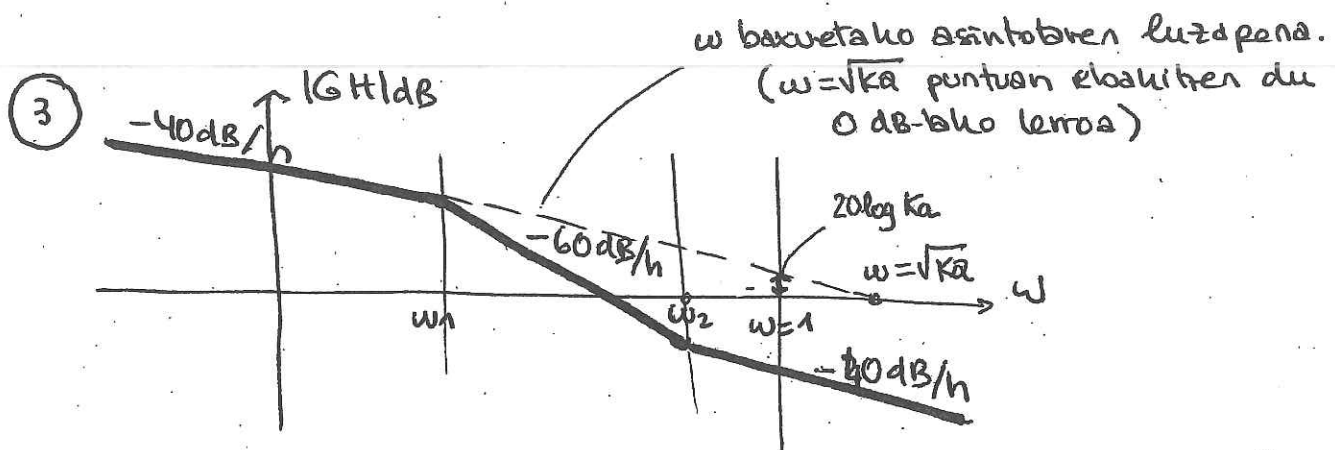 w baxuetako asintotaren luzapena.
(w=√Ka puntuan ebakitzen du
0 dB-tako lerroa)
3
|GH|dB
-40dB/h
20log Ka
-60dB/h
w=√Ka
w
w1
w2
w=1
-40dB/h